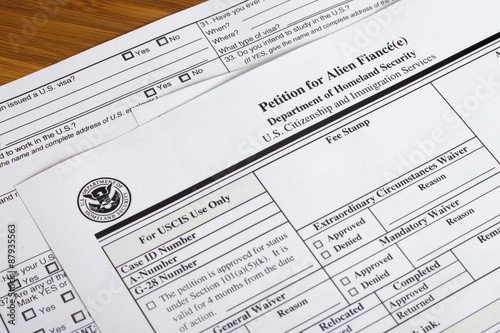 31. Have you ever
When?
Where?
What type of visa?
33. Do you intend to study in the U.S.?
(If YES, give the name and complete address
Yes No
issued a U.S. visa?
Yes No
to work in the U.S.?
the name and complete address of
Petition for Alien Fiancé(e)
Department of Homeland Security
U.S. Citizenship and Immigration Services
U.S. DEPARTMENT OF HOMELAND SECURITY
For USCIS Use Only
Case ID Number
A-Number
G-28 Number
The petition is approved for status
under Section 101(a)(5)(k). It is
valid for 4 months from the date
of action.
General Waiver
Fee Stamp
Extraordinary Circumstances Waiver
Approved
Denied
Reason
Mandatory Waiver
Approved
Denied
Reason
Completed
Approved
Returned
your
Yes
Are any of the
Mark YES or
Yes
Yes
Adobe Stock
#87935563